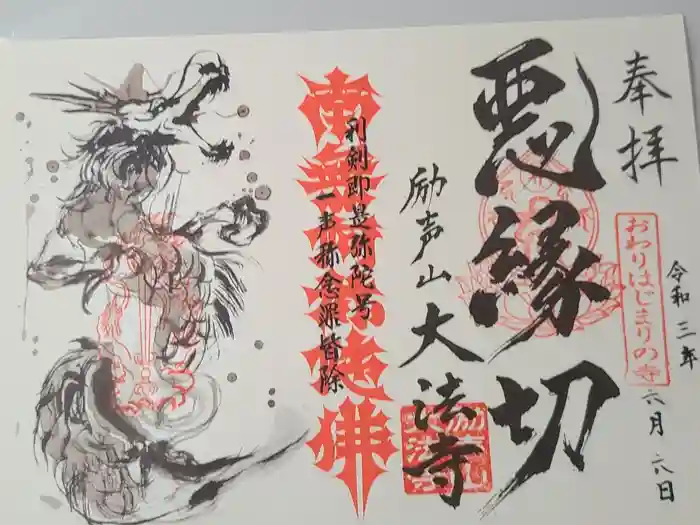 奉拝
令和三年
六月六日
おわりはじまりの寺
悪縁切
励声山
大法寺
利剣即是弥陀号
一声称念罪皆除
南無阿弥陀佛